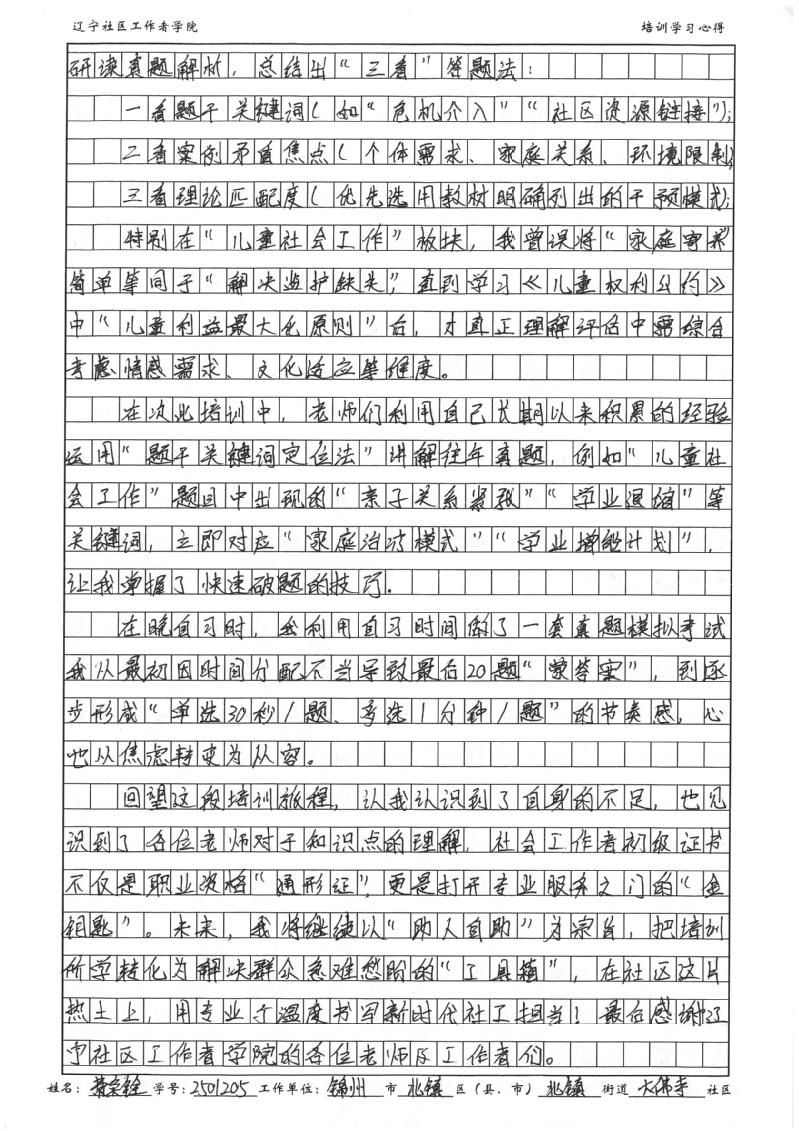 辽宁社区工作者学院 培训学习心得
研读真题解析，总结出“三看”答题法：
一看题干关键词（如“危机介入”“社区资源链接”）；
二看案例矛盾焦点（个体需求、家庭关系、环境限制）；
三看理论匹配度（优先选用教材明确列出的干预模式）；
特别在“儿童社会工作”板块，我曾误将“家庭寄养”
简单等同于“解决监护缺失”，直到学习《儿童权利公约》
中“儿童利益最大化原则”后，才真正理解评估中需综合
考虑情感需求、文化适应等维度。
在次此培训中，老师们利用自己长期以来积累的经验
运用“题干关键词定位法”讲解往年真题，例如“儿童社
会工作”题目中出现的“亲子关系紧张”“学业退缩”等
关键词，立即对应“家庭治疗模式”“学业增能计划”，
让我掌握了快速破题的技巧。
在晚自习时，我利用自习时间做了一套真题模拟考试
我从最初因时间分配不当导致最后20题“蒙答案”，到逐
步形成“单选30秒/题、多选1分钟/题”的节奏感，心
也从焦虑转变为从容。
回望这段培训旅程，认我认识到了自身的不足，也见
识到了各位老师对于知识点的理解，社会工作者初级证书
不仅是职业资格“通形证”，更是打开专业服务之门的“金
钥匙”。未来，我将继续以“助人自助”为宗旨，把培训
所学转化为解决群众急难愁盼的“工具箱”，在社区这片
热土上，用专业于温度书写新时代社工担当！最后感谢辽
宁社区工作者学院的各位老师及工作者们。
姓名： 学号：2501205 工作单位：锦州 市 北镇 区（县、市） 北镇 街道 大佛寺 社区